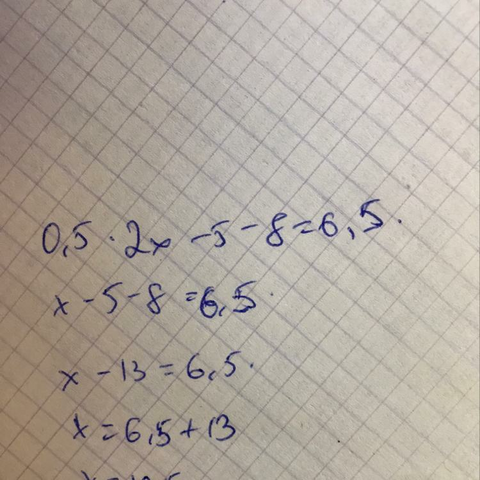 0,5 · 2x - 5 - 8 = 6,5.
x - 5 - 8 = 6,5.
x - 13 = 6,5.
x = 6,5 + 13